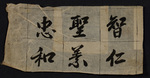 智仁
聖義
忠和